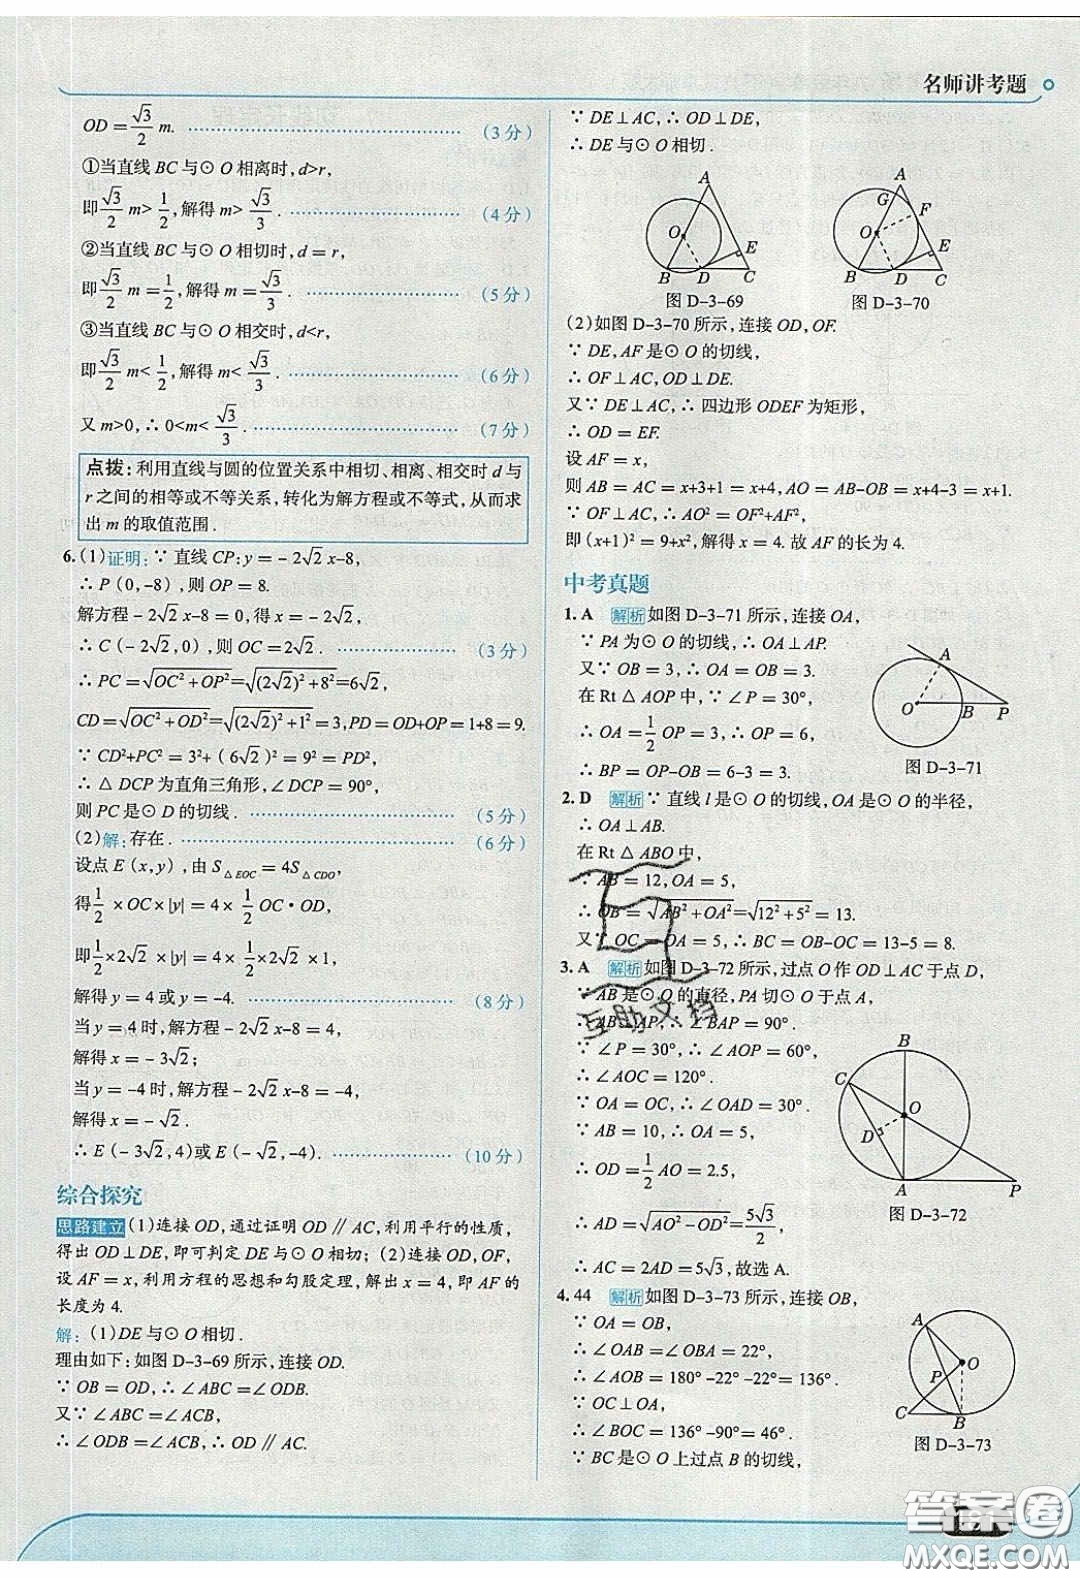 名师讲考题
OD = √3/2 m. (3分)
①当直线 BC 与⊙O 相离时,d>r,
即 √3/2 m> 1/2,解得 m> √3/3. (4分)
②当直线 BC 与⊙O 相切时,d = r,
即 √3/2 m = 1/2,解得 m = √3/3. (5分)
③当直线 BC 与⊙O 相交时,d<r,
即 √3/2 m< 1/2,解得 m< √3/3. (6分)
又 m>0,∴ 0<m< √3/3. (7分)
点拨:利用直线与圆的位置关系中相切、相离、相交时 d 与
r 之间的相等或不等关系,转化为解方程或不等式,从而求
出 m 的取值范围.
6.(1)证明:∵ 直线 CP:y = -2√2 x-8,
∴ P(0,-8),则 OP = 8.
解方程 -2√2 x-8 = 0,得 x = -2√2,
∴ C(-2√2,0),则 OC = 2√2. (3分)
∴ PC = √(OC²+OP²) = √((2√2)²+8²) = 6√2,
CD = √(OC²+OD²) = √((2√2)²+1²) = 3,PD = OD+OP = 1+8 = 9.
∵ CD²+PC² = 3²+(6√2)² = 9² = PD²,
∴ △DCP 为直角三角形,∠DCP = 90°,
则 PC 是⊙D 的切线. (5分)
(2)解:存在. (6分)
设点 E(x,y),由 S△EOC = 4S△CDO,
得 1/2 ×OC×|y| = 4× 1/2 OC·OD,
即 1/2 ×2√2 ×|y| = 4× 1/2 ×2√2 ×1,
解得 y = 4 或 y = -4. (8分)
当 y = 4 时,解方程 -2√2 x-8 = 4,
解得 x = -3√2;
当 y = -4 时,解方程 -2√2 x-8 = -4,
解得 x = -√2.
∴ E(-3√2,4)或 E(-√2,-4). (10分)
综合探究
思路建立 (1)连接 OD,通过证明 OD∥AC,利用平行的性质,
得出 OD⊥DE,即可判定 DE 与⊙O 相切;(2)连接 OD,OF,
设 AF = x,利用方程的思想和勾股定理,解出 x = 4,即 AF 的
长度为 4.
解:(1)DE 与⊙O 相切.
理由如下:如图 D-3-69 所示,连接 OD.
∵ OB = OD,∴ ∠ABC = ∠ODB.
又∵ ∠ABC = ∠ACB,
∴ ∠ODB = ∠ACB,∴ OD∥AC.
∵ DE⊥AC,∴ OD⊥DE,
∴ DE 与⊙O 相切.
A
O
E
B D C
图 D-3-69
A
G
F
O
E
B D C
图 D-3-70
(2)如图 D-3-70 所示,连接 OD,OF.
∵ DE,AF 是⊙O 的切线,
∴ OF⊥AC,OD⊥DE.
又∵ DE⊥AC,∴ 四边形 ODEF 为矩形,
∴ OD = EF.
设 AF = x,
则 AB = AC = x+3+1 = x+4,AO = AB-OB = x+4-3 = x+1.
∵ OF⊥AC,∴ AO² = OF²+AF²,
即(x+1)² = 9+x²,解得 x = 4. 故 AF 的长为 4.
中考真题
1. A 解析 如图 D-3-71 所示,连接 OA,
∵ PA 为⊙O 的切线,∴ OA⊥AP.
又∵ OB = 3,∴ OA = OB = 3.
在 Rt△AOP 中,∵ ∠P = 30°,
∴ OA = 1/2 OP = 3,∴ OP = 6,
∴ BP = OP-OB = 6-3 = 3.
A
O B P
图 D-3-71
2. D 解析 ∵ 直线 l 是⊙O 的切线,OA 是⊙O 的半径,
∴ OA⊥AB.
在 Rt△ABO 中,
∵ AB = 12,OA = 5,
∴ OB = √(AB²+OA²) = √(12²+5²) = 13.
又∵ OC = OA = 5,∴ BC = OB-OC = 13-5 = 8.
3. A 解析 如图 D-3-72 所示,过点 O 作 OD⊥AC 于点 D,
∵ AB 是⊙O 的直径,PA 切⊙O 于点 A,
∴ AB⊥AP,∴ ∠BAP = 90°.
∵ ∠P = 30°,∴ ∠AOP = 60°,
∴ ∠AOC = 120°.
∵ OA = OC,∴ ∠OAD = 30°.
∵ AB = 10,∴ OA = 5,
∴ OD = 1/2 AO = 2.5,
∴ AD = √(AO²-OD²) = 5√3/2,
∴ AC = 2AD = 5√3,故选 A.
B
C
O
D
A P
图 D-3-72
4. 44 解析 如图 D-3-73 所示,连接 OB,
∵ OA = OB,
∴ ∠OAB = ∠OBA = 22°,
∴ ∠AOB = 180°-22°-22° = 136°.
∵ OC⊥OA,
∴ ∠BOC = 136°-90° = 46°.
∵ BC 是⊙O 上过点 B 的切线,
A
P O
C B
图 D-3-73
互助文档
答案圈
MXQE.COM